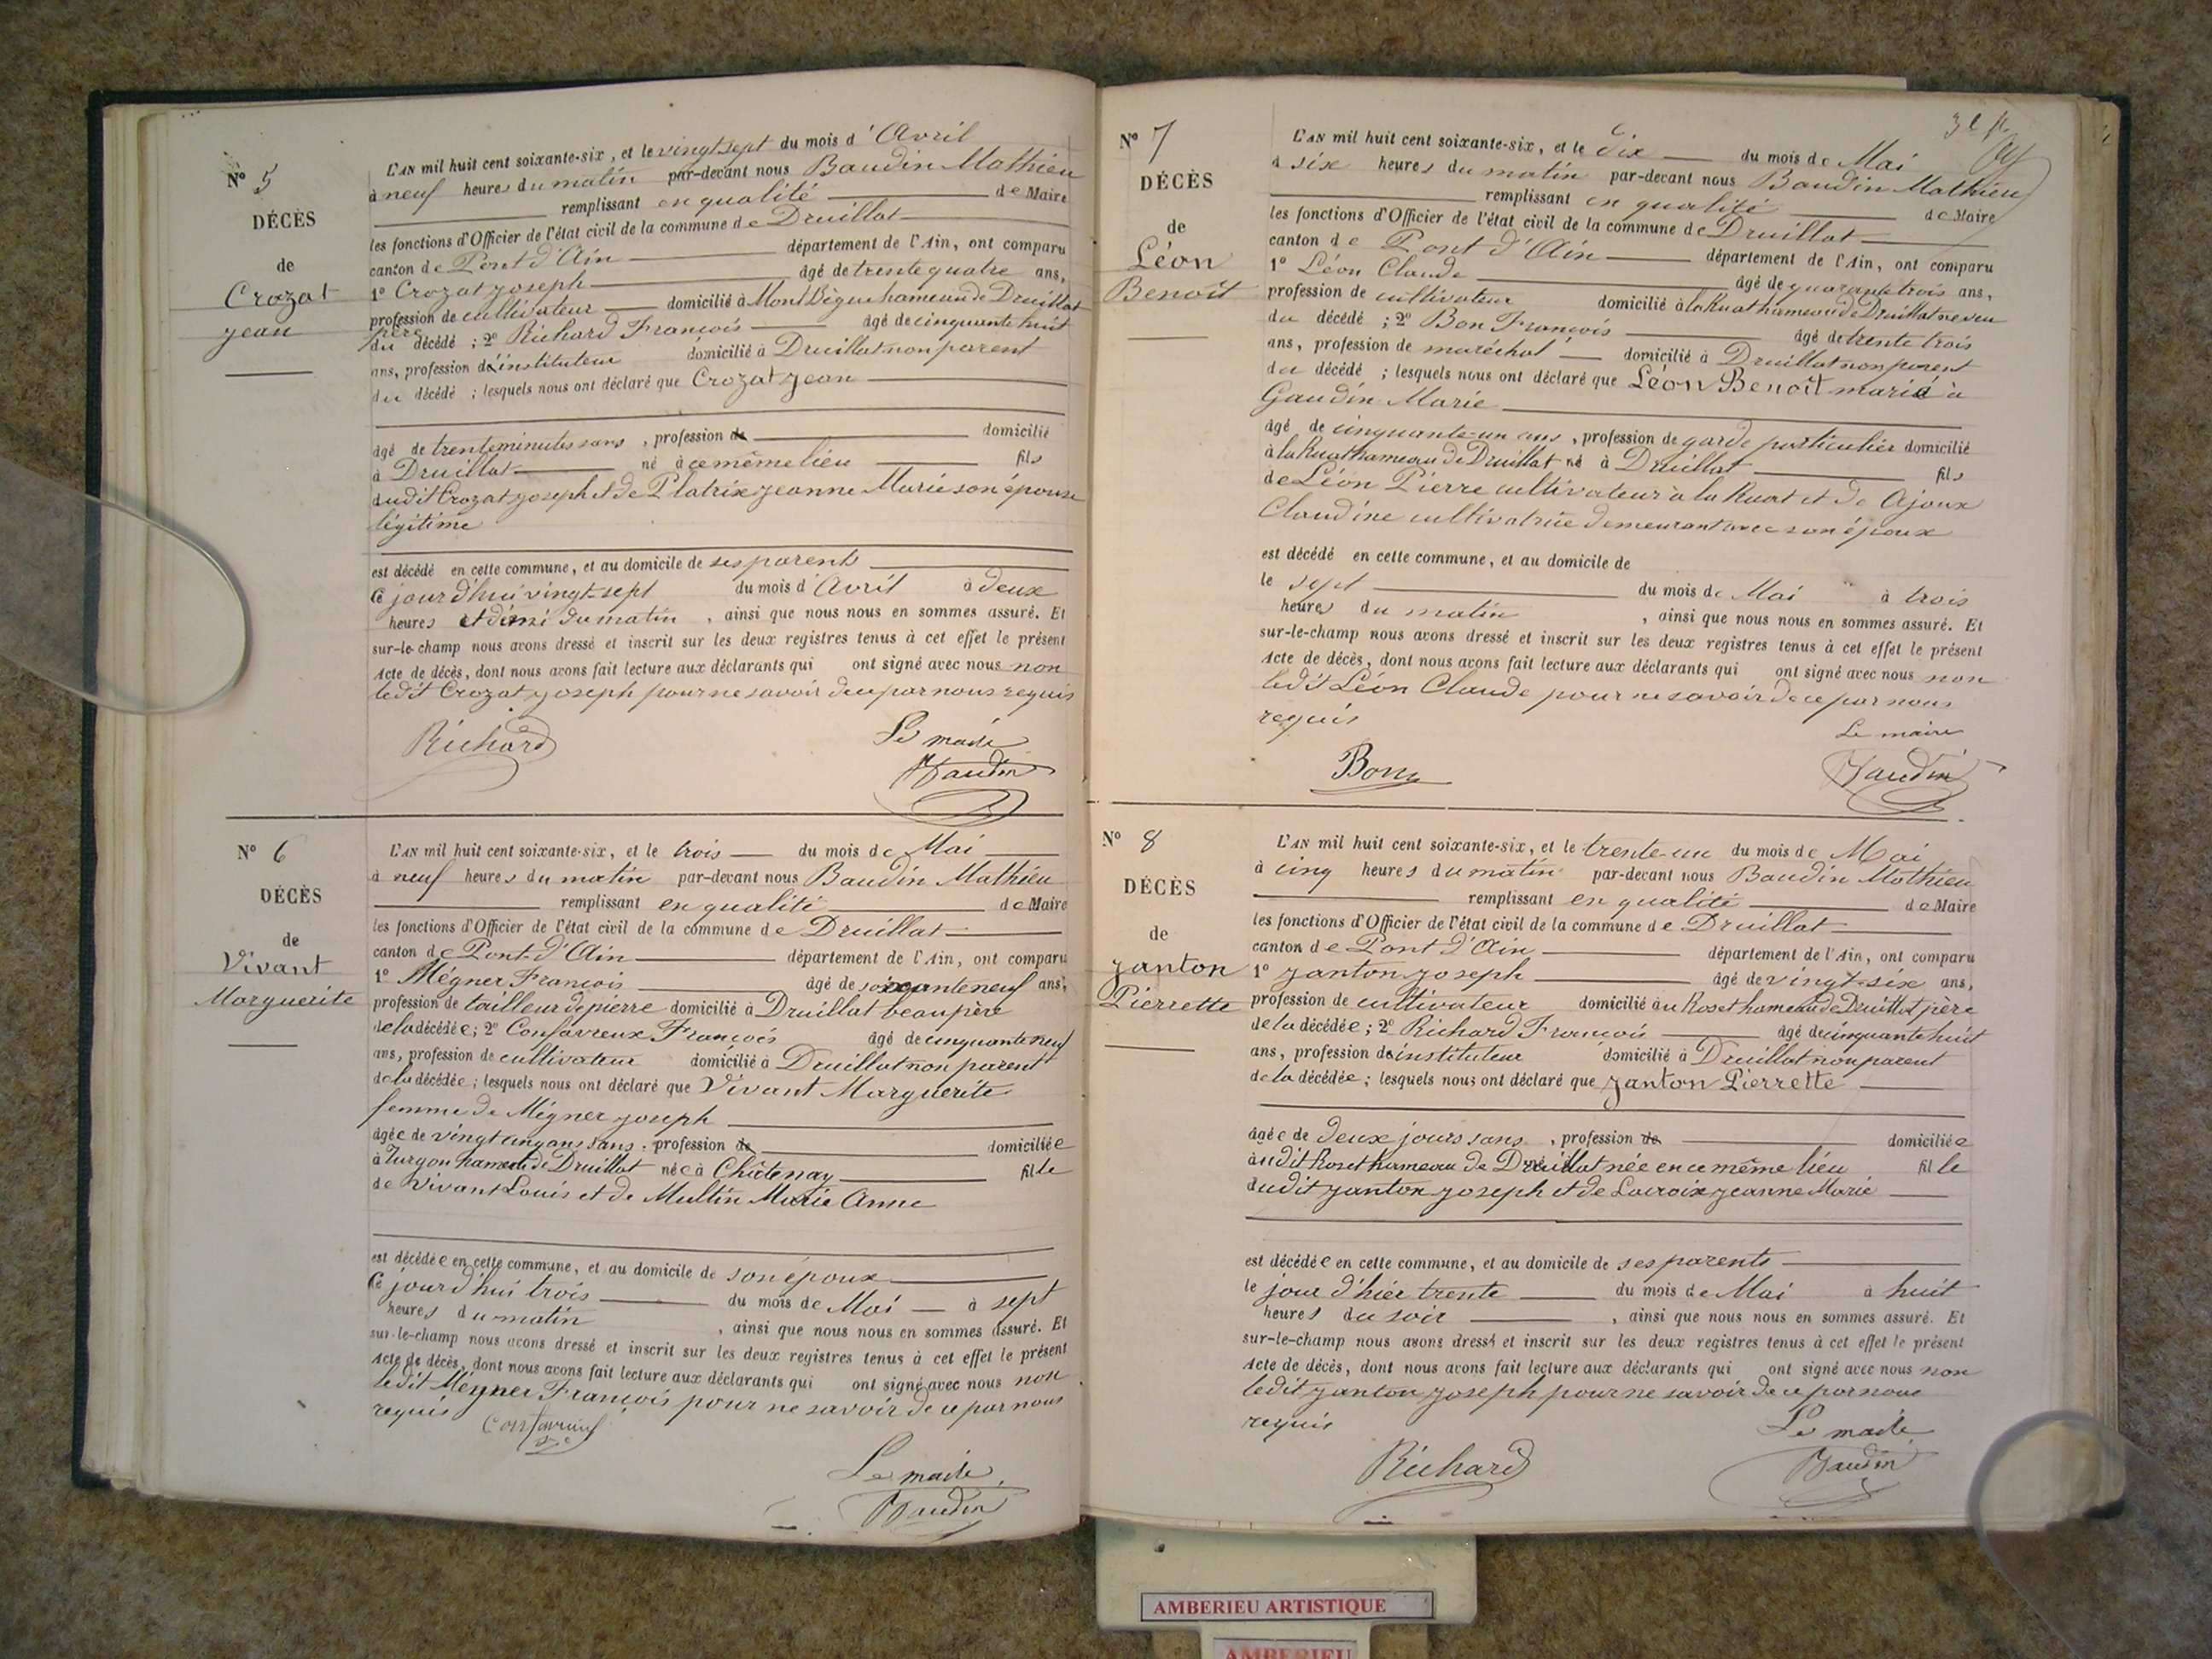 N° 5
DÉCÈS
de
Crozat
Jean
L'AN mil huit cent soixante-six, et le vingt sept du mois d'Avril
à neuf heures du matin par-devant nous Baudin Mathieu
remplissant en qualité de Maire
les fonctions d'Officier de l'état civil de la commune de Druillat
canton de Pont d'Ain département de l'Ain, ont comparu
1° Crozat Joseph âgé de trente quatre ans,
profession de cultivateur domicilié à Mont Bègue hameau de Druillat
père
du décédé ; 2° Richard François âgé de cinquante huit
ans, profession d'instituteur domicilié à Druillat non parent
du décédé ; lesquels nous ont déclaré que Crozat Jean
âgé de trente minutes sans , profession de domicilié
à Druillat né à ce même lieu fils
dudit Crozat Joseph et de Platrix Jeanne Marie son épouse
légitime
est décédé en cette commune, et au domicile de ses parents
Ce jourd'hui vingt-sept du mois d'Avril à deux
heures et demi du matin , ainsi que nous nous en sommes assuré. Et
sur-le-champ nous avons dressé et inscrit sur les deux registres tenus à cet effet le présent
Acte de décès, dont nous avons fait lecture aux déclarants qui ont signé avec nous non
ledit Crozat Joseph pour ne savoir de ce par nous requis
Richard
Le maire
Baudin
N° 6
DÉCÈS
de
Vivant
Marguerite
L'AN mil huit cent soixante-six, et le trois du mois de Mai
à neuf heures du matin par-devant nous Baudin Mathieu
remplissant en qualité de Maire
les fonctions d'Officier de l'état civil de la commune de Druillat
canton de Pont-d'Ain département de l'Ain, ont comparu
1° Mégner François âgé de soixante neuf ans,
profession de tailleur de pierre domicilié à Druillat beau père
de la décédée ; 2° Confavreux François âgé de cinquante neuf
ans, profession de cultivateur domicilié à Druillat non parent
de la décédée ; lesquels nous ont déclaré que Vivant Marguerite
femme de Mégner Joseph
âgée de vingt cinq ans sans , profession de domiciliée
à Turgon hameau de Druillat née à Châtenay fille
de Vivant Louis et de Multin Marie Anne
est décédée en cette commune, et au domicile de son époux
Ce jourd'hui trois du mois de Mai à sept
heures du matin , ainsi que nous nous en sommes assuré. Et
sur-le-champ nous avons dressé et inscrit sur les deux registres tenus à cet effet le présent
Acte de décès, dont nous avons fait lecture aux déclarants qui ont signé avec nous non
ledit Mégner François pour ne savoir de ce par nous
requis
Confavreux
Le maire
Baudin
N° 7
DÉCÈS
de
Léon
Benoît
L'AN mil huit cent soixante-six, et le dix du mois de Mai
à six heures du matin par-devant nous Baudin Mathieu
remplissant en qualité de Maire
les fonctions d'Officier de l'état civil de la commune de Druillat
canton de Pont d'Ain département de l'Ain, ont comparu
1° Léon Claude âgé de quarante trois ans,
profession de cultivateur domicilié à la Ruat hameau de Druillat neveu
du décédé ; 2° Bon François âgé de trente trois
ans, profession de maréchal domicilié à Druillat non parent
du décédé ; lesquels nous ont déclaré que Léon Benoît marié à
Gaudin Marie
âgé de cinquante-un ans , profession de garde particulier domicilié
à la Ruat hameau de Druillat né à Druillat fils
de Léon Pierre cultivateur à la Ruat et de Ajoux
Claudine cultivatrice demeurant avec son époux
est décédé en cette commune, et au domicile de
le sept du mois de Mai à trois
heures du matin , ainsi que nous nous en sommes assuré. Et
sur-le-champ nous avons dressé et inscrit sur les deux registres tenus à cet effet le présent
Acte de décès, dont nous avons fait lecture aux déclarants qui ont signé avec nous non
ledit Léon Claude pour ne savoir de ce par nous
requis
Le maire
Bon
Baudin
N° 8
DÉCÈS
de
Janton
Pierrette
L'AN mil huit cent soixante-six, et le trente-un du mois de Mai
à cinq heures du matin par-devant nous Baudin Mathieu
remplissant en qualité de Maire
les fonctions d'Officier de l'état civil de la commune de Druillat
canton de Pont d'Ain département de l'Ain, ont comparu
1° Janton Joseph âgé de vingt-six ans,
profession de cultivateur domicilié au Roset hameau de Druillat père
de la décédée ; 2° Richard François âgé de cinquante huit
ans, profession d'instituteur domicilié à Druillat non parent
de la décédée ; lesquels nous ont déclaré que Janton Pierrette
âgée de deux jours sans , profession de domiciliée
audit Roset hameau de Druillat née en ce même lieu fille
dudit Janton Joseph et de Lacroix Jeanne Marie
est décédée en cette commune, et au domicile de ses parents
le jour d'hier trente du mois de Mai à huit
heures du soir , ainsi que nous nous en sommes assuré. Et
sur-le-champ nous avons dressé et inscrit sur les deux registres tenus à cet effet le présent
Acte de décès, dont nous avons fait lecture aux déclarants qui ont signé avec nous non
ledit Janton Joseph pour ne savoir de ce par nous
requis
Le maire
Richard
Baudin
AMBERIEU ARTISTIQUE
AMBERIEU